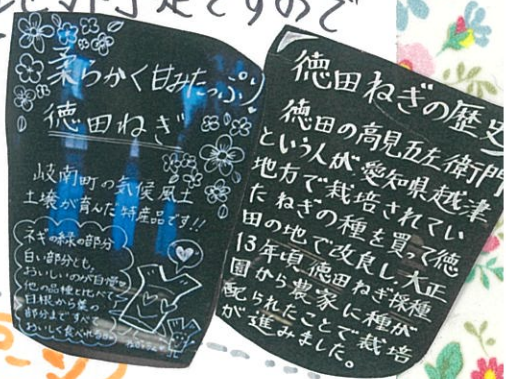 予定ですので
柔らかく甘みたっぷり
徳田ねぎ
岐南町の気候風土
土壌が育んだ特産品です!!
ネギの緑の部分
白い部分とも、
おいしいのが自慢
他の品種と比べて
白根から葉の
部分まですべて
おいしく食べれるのが
徳田ねぎの歴史
徳田の高見五左衛門
という人が愛知県越津
地方で栽培されてい
たねぎの種を買って徳
田の地で改良し、大正
13年頃、徳田ねぎ採種
園から農家に種が
配られたことで栽培
が進みました。